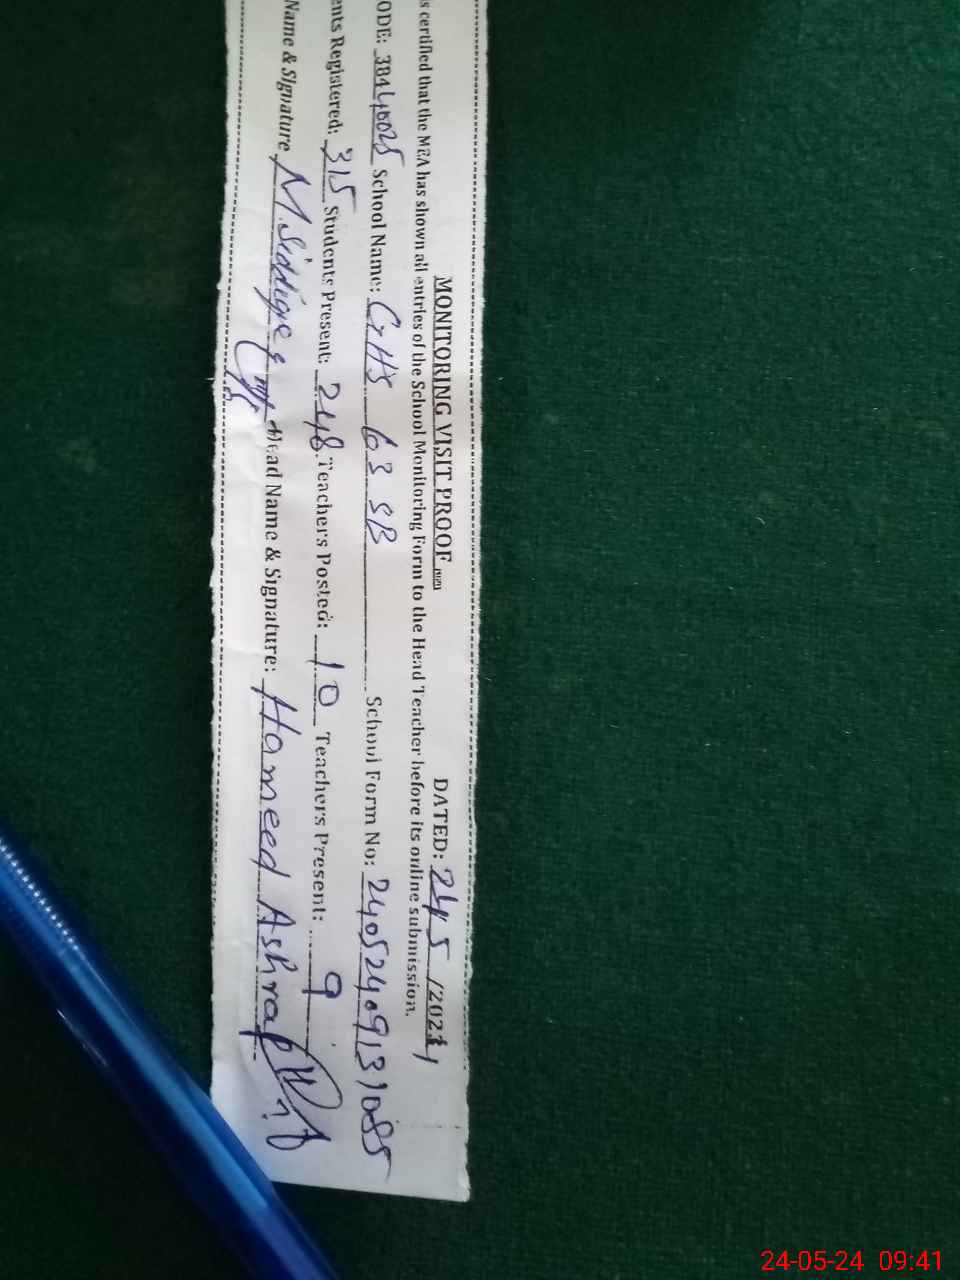 MONITORING VISIT PROOF DATED: 24 5 /2024
s certified that the MEA has shown all entries of the School Monitoring Form to the Head Teacher before its online submission.
ODE: 38440025 School Name: GHS 63 SB School Form No: 24052409131085
ents Registered: 315 Students Present: 248 Teachers Posted: 10 Teachers Present: 9
Name & Signature M. Siddique Head Name & Signature: Hameed Ashraf
24-05-24 09:41